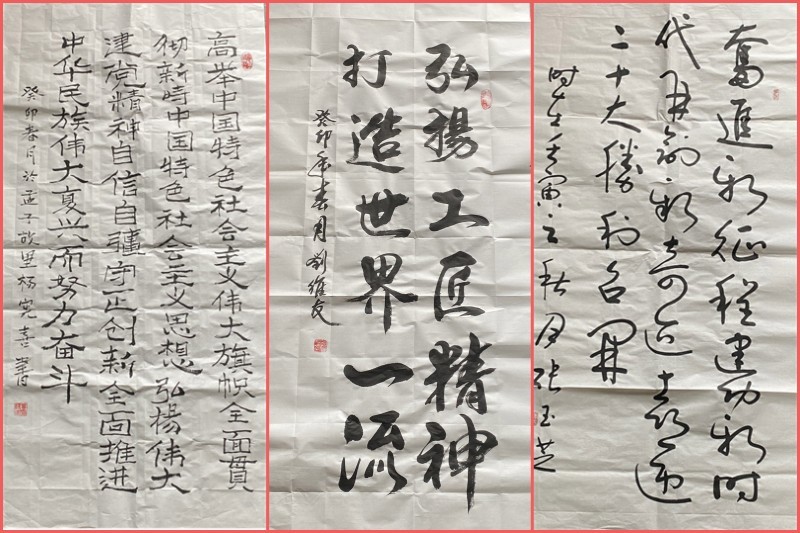 高举中国特色社会主义伟大旗帜全面貫
彻新时中国特色社会主义思想弘楊伟大
建党精神自信自疆守正创新全面推进
中华民族伟大复兴而努力奋斗
癸卯春月於孟子故里楊宪喜書
弘揚工匠精神
打造世界一流
癸卯年春月劉維友
奮進新征程建功新时
代再创新奇迹喜迎
二十大勝利召開
时在壬寅之秋月张玉芝